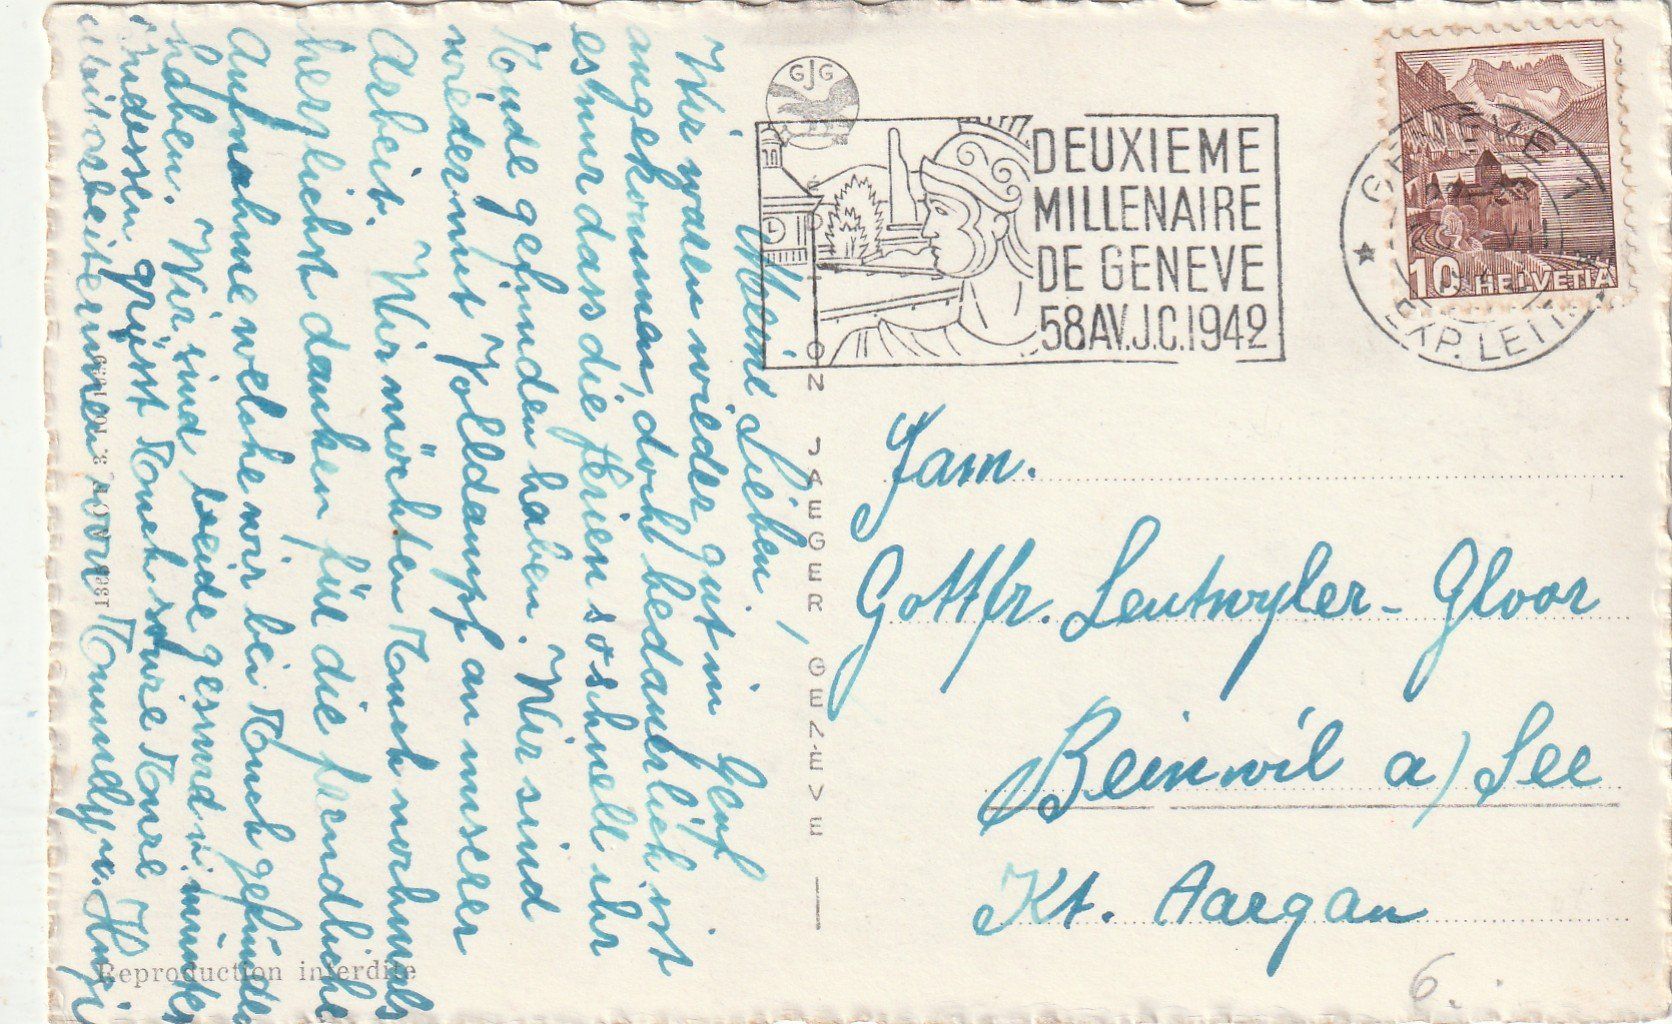 Meine Lieben!
Wir waren wieder gut in Genf
angekommen, doch bedauerlich ist
es nur dass die Ferien so schnell ihr
Ende gefunden haben. Wir sind
wieder mit Volldampf an unserer
Arbeit. Wir möchten Euch nochmals
herzlichst danken für die freundliche
Aufnahme welche wir bei Euch gefunden
haben. Wir sind beide gesund u. munter
indessen grüsst Euch sowie Eure
Mitarbeiterinnen
GJG
EDITION JAEGER / GENEVE
DEUXIEME
MILLENAIRE
DE GENEVE
58 AV. J.C. 1942
GENEVE 1
EXP. LETTR.
VII
10 HELVETIA
Fam.
Gottfr. Leutwyler-Gloor
Beinwil a/See
Kt. Aargau
Reproduction interdite
6.